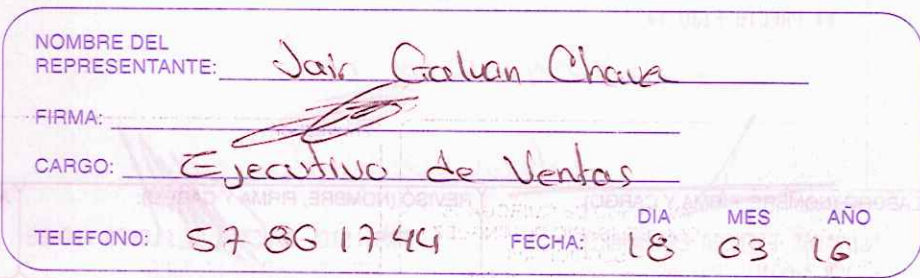 NOMBRE DEL
REPRESENTANTE: Jair Galvan Chava
FIRMA:
CARGO: Ejecutivo de Ventas
DIA MES AÑO
TELEFONO: 57 86 17 44 FECHA: 18 03 16